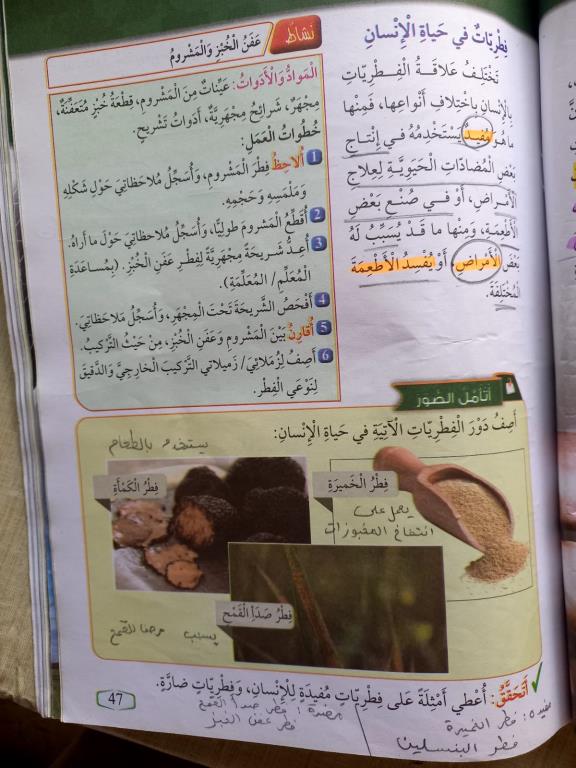 فِطْرِيّاتٌ في حَياةِ الْإِنْسانِ
تَخْتَلِفُ عَلاقَةُ الْفِطْرِيّاتِ
بِالْإِنْسانِ بِاخْتِلافِ أَنْواعِها، فَمِنْها
ما هُوَ مُفيدٌ يَسْتَخْدِمُهُ في إِنْتاجِ
بَعْضِ الْمُضادّاتِ الْحَيَوِيَّةِ لِعِلاجِ
الْأَمْراضِ، أَوْ في صُنْعِ بَعْضِ
الْأَطْعِمَةِ، وَمِنْها ما قَدْ يُسَبِّبُ لَهُ
بَعْضَ الْأَمْراضِ، أَوْ يُفْسِدُ الْأَطْعِمَةَ
الْمُخْتَلِفَةَ.
نَشاطٌ
عَفَنُ الْخُبْزِ وَالْمَشْرومُ
الْمَوادُّ وَالْأَدَواتُ: عَيِّناتٌ مِنَ الْمَشْرومِ، قِطْعَةُ خُبْزٍ مُتَعَفِّنَةٌ،
مِجْهَرٌ، شَرائِحُ مِجْهَرِيَّةٌ، أَدَواتُ تَشْريحٍ.
خُطُواتُ الْعَمَلِ:
1 أُلاحِظُ فِطْرَ الْمَشْرومِ، وَأُسَجِّلُ مُلاحَظاتي حَوْلَ شَكْلِهِ
وَمَلْمَسِهِ وَحَجْمِهِ.
2 أُقَطِّعُ الْمَشْرومَ طولِيًّا، وَأُسَجِّلُ مُلاحَظاتي حَوْلَ ما أَراهُ.
3 أُعِدُّ شَريحَةً مِجْهَرِيَّةً لِفِطْرِ عَفَنِ الْخُبْزِ. (بِمُساعَدَةِ
الْمُعَلِّمِ/ الْمُعَلِّمَةِ).
4 أَفْحَصُ الشَّريحَةَ تَحْتَ الْمِجْهَرِ، وَأُسَجِّلُ مُلاحَظاتي.
5 أُقارِنُ بَيْنَ الْمَشْرومِ وَعَفَنِ الْخُبْزِ، مِنْ حَيْثُ التَّرْكيبُ.
6 أَصِفُ لِزُمَلائي/ زَميلاتي التَّرْكيبَ الْخارِجِيَّ وَالدَّقيقَ
لِنَوْعَيِ الْفِطْرِ.
أَتَأَمَّلُ الصُّوَرَ
أَصِفُ دَوْرَ الْفِطْرِيّاتِ الْآتِيَةِ في حَياةِ الْإِنْسانِ:
يستخدم بالطعام
فِطْرُ الْخَميرَةِ
فِطْرُ الْكَمْأَةِ
يعمل على
انتفاخ المخبوزات
فِطْرُ صَدَأِ الْقَمْحِ
يسبب مرضا للقمح
أَتَحَقَّقُ: أُعْطي أَمْثِلَةً عَلى فِطْرِيّاتٍ مُفيدَةٍ لِلْإِنْسانِ، وَفِطْرِيّاتٍ ضارَّةٍ.
مفيدة: فطر الخميرة
فطر البنسلين
مضرة: فطر صدأ القمح
فطر عفن الخبز
47